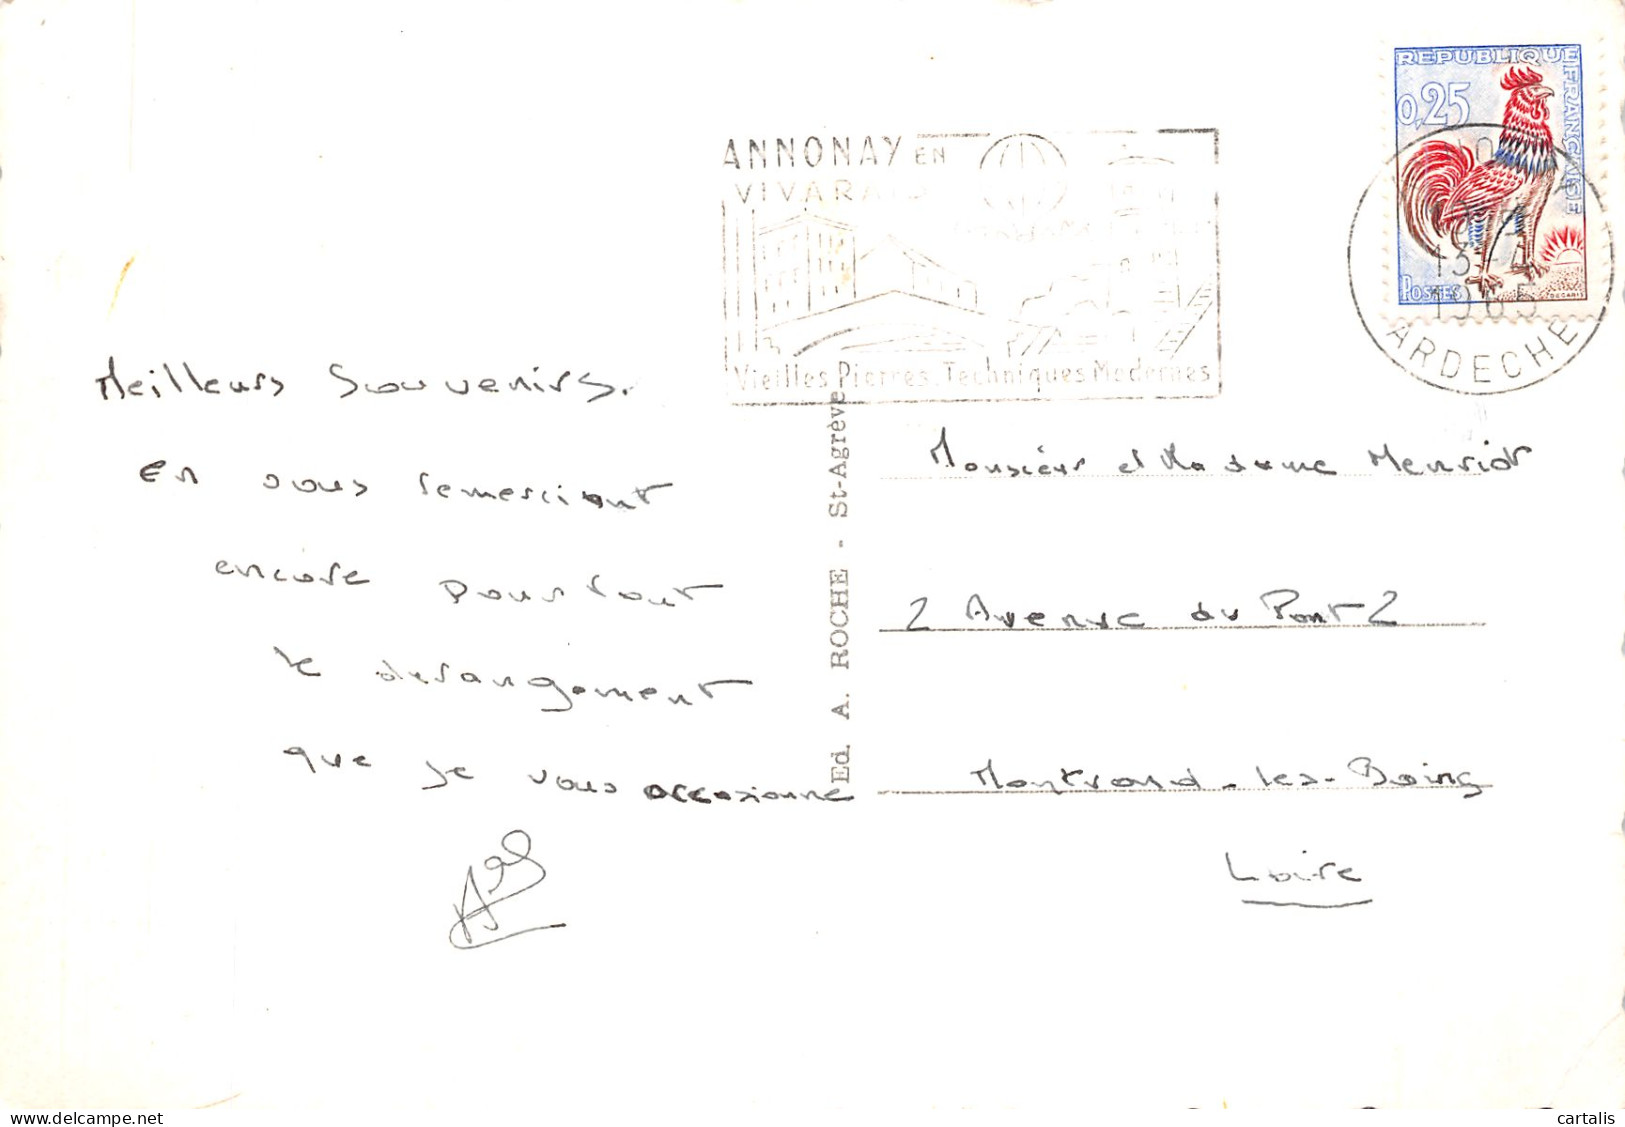 REPUBLIQUE FRANÇAISE
0,25
POSTES
DECARIS
ANNONAY EN
VIVARAIS
Vieilles Pierres. Techniques Modernes
13-4
1965
ARDECHE
Meilleurs Souvenirs.
en vous remerciant
encore pour tout
le derangement
que je vous occasionne
Ed. A. ROCHE - St-Agrève
Monsieur et Madame Henriot
2 Avenue du Pont 2
Montrond-les-Bains
Loire
cartalis